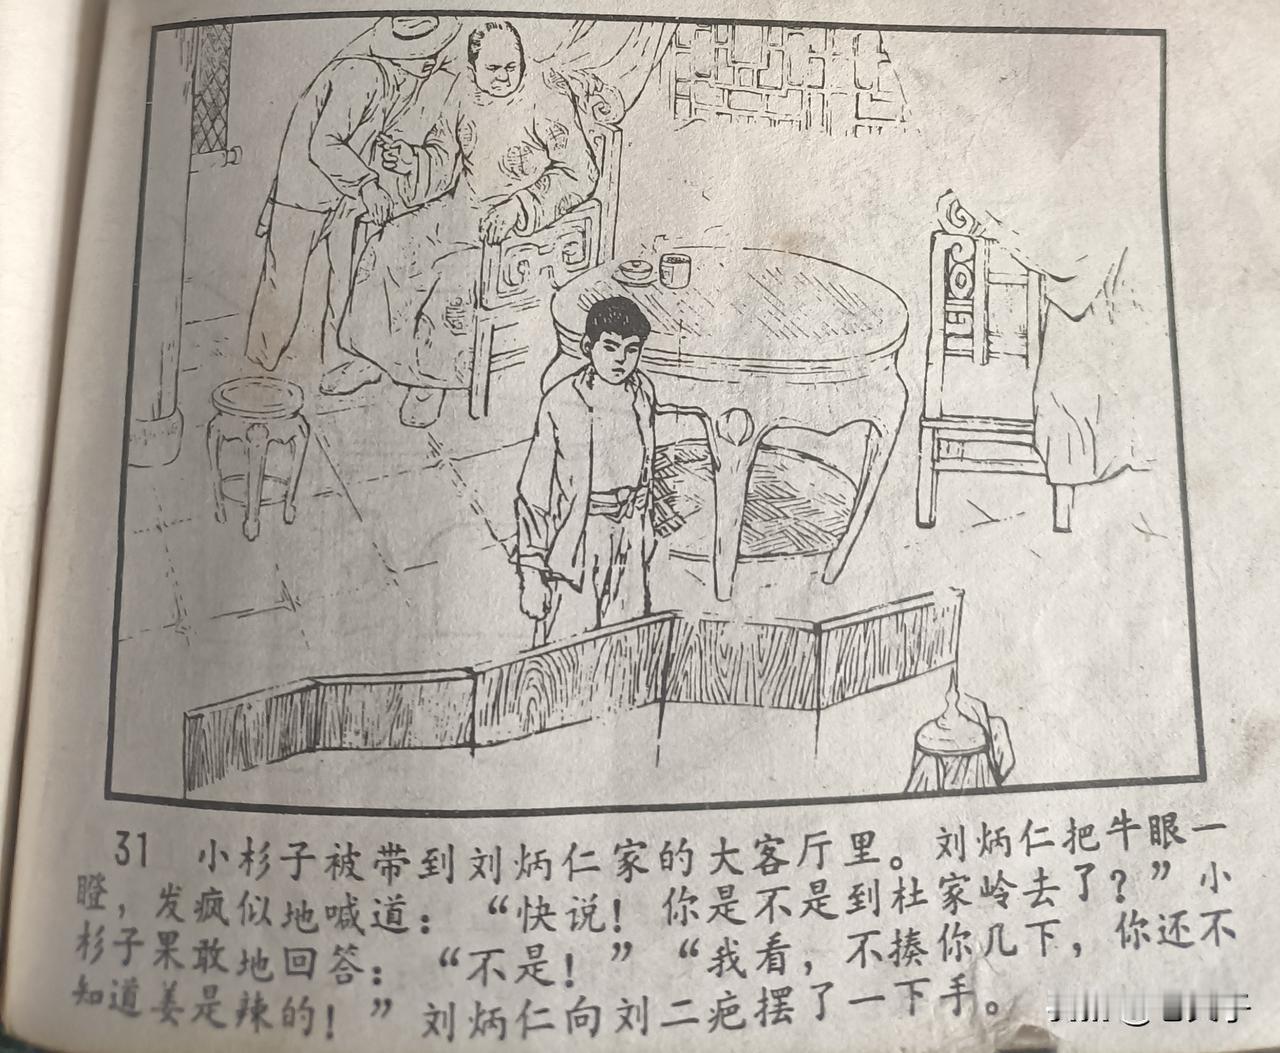 31 小杉子被带到刘炳仁家的大客厅里。刘炳仁把牛眼一
瞪，发疯似地喊道：“快说！你是不是到杜家岭去了？”小
杉子果敢地回答：“不是！”“我看，不揍你几下，你还不
知道姜是辣的！”刘炳仁向刘二疤摆了一下手。